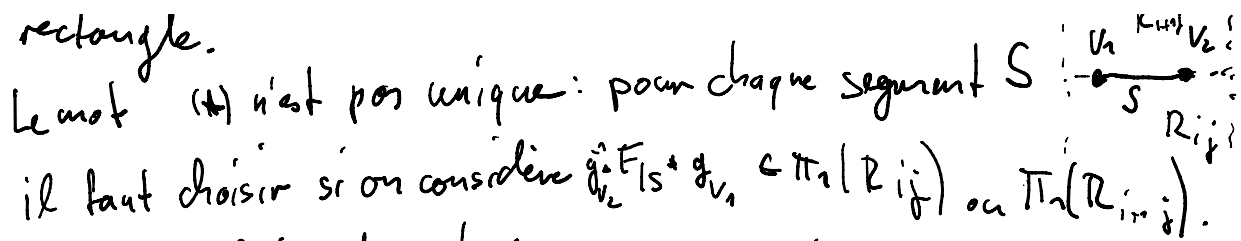 rectangle.
Le mot (*) n'est pas unique : pour chaque segment S
V₁ V₂
S
R_{ij}
il faut choisir si on considère g_{V₂} * F|_S * g_{V₁} ∈ π₁(R_{ij}) ou π₁(R_{i+1 j}).